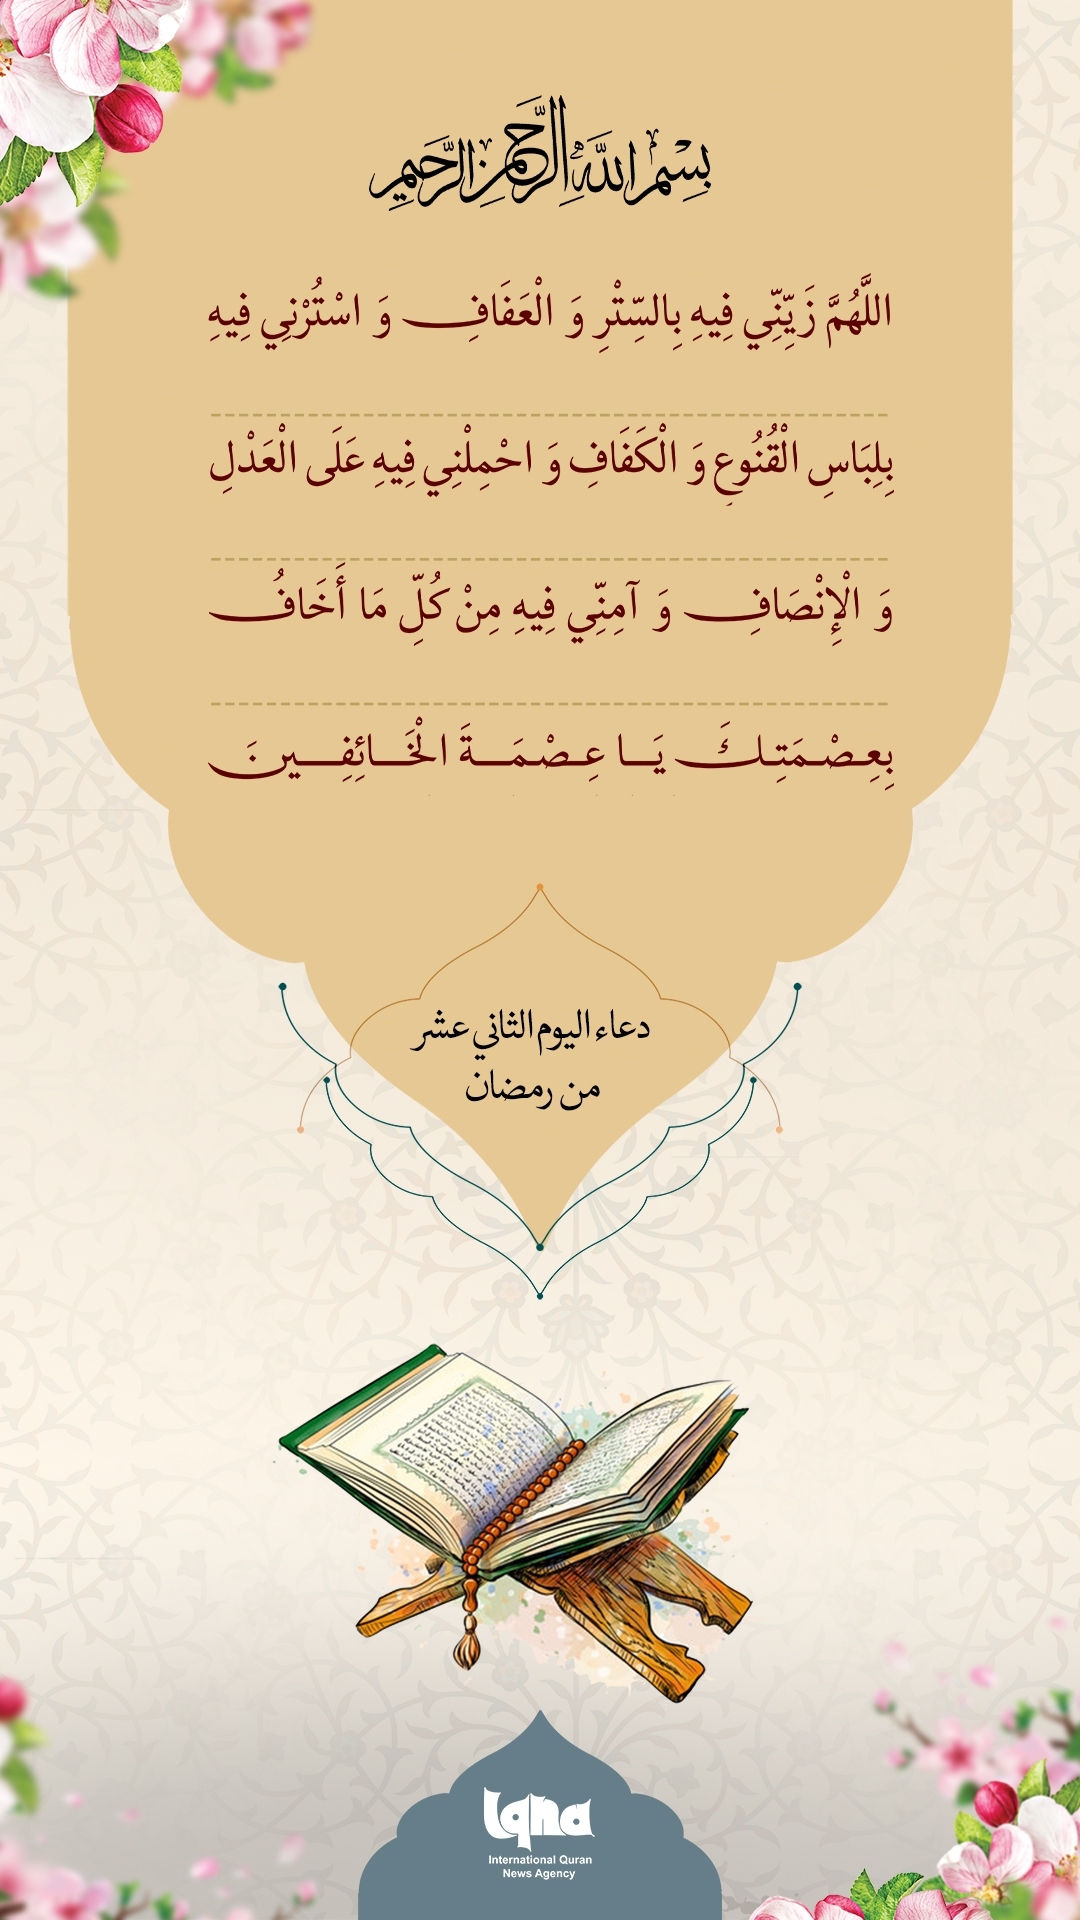 بِسْمِ اللَّهِ الرَّحْمنِ الرَّحيمِ
اللَّهُمَّ زَيِّنِّي فِيهِ بِالسِّتْرِ وَ الْعَفَافِ وَ اسْتُرْنِي فِيهِ
بِلِبَاسِ الْقُنُوعِ وَ الْكَفَافِ وَ احْمِلْنِي فِيهِ عَلَى الْعَدْلِ
وَ الْإِنْصَافِ وَ آمِنِّي فِيهِ مِنْ كُلِّ مَا أَخَافُ
بِعِصْمَتِكَ يَا عِصْمَةَ الْخَائِفِينَ
دعاء اليوم الثاني عشر
من رمضان
Iqna
International Quran
News Agency